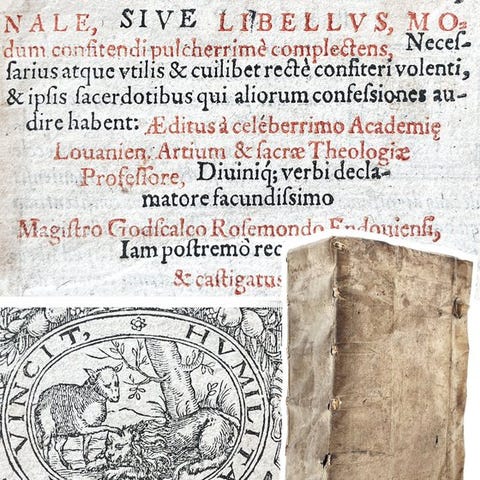 NALE, SIVE LIBELLVS, MO-
dum confitendi pulcherrimè complectens, Neces-
sarius atque vtilis & cuilibet rectè confiteri volenti,
& ipsis sacerdotibus qui aliorum confessiones au-
dire habent: Æditus à celéberrimo Academię
Louanien. Artium & sacræ Theologiæ
Professore, Diuiniq; verbi decla-
matore facundissimo
Magistro Godscalco Rosemondo Endouiensi,
Iam postremò rec
& castigatus
VINCIT, HVMILITA